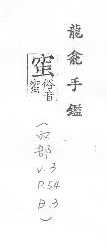 龍龕手鑑
俗音
部
v.3
P.54
B.3